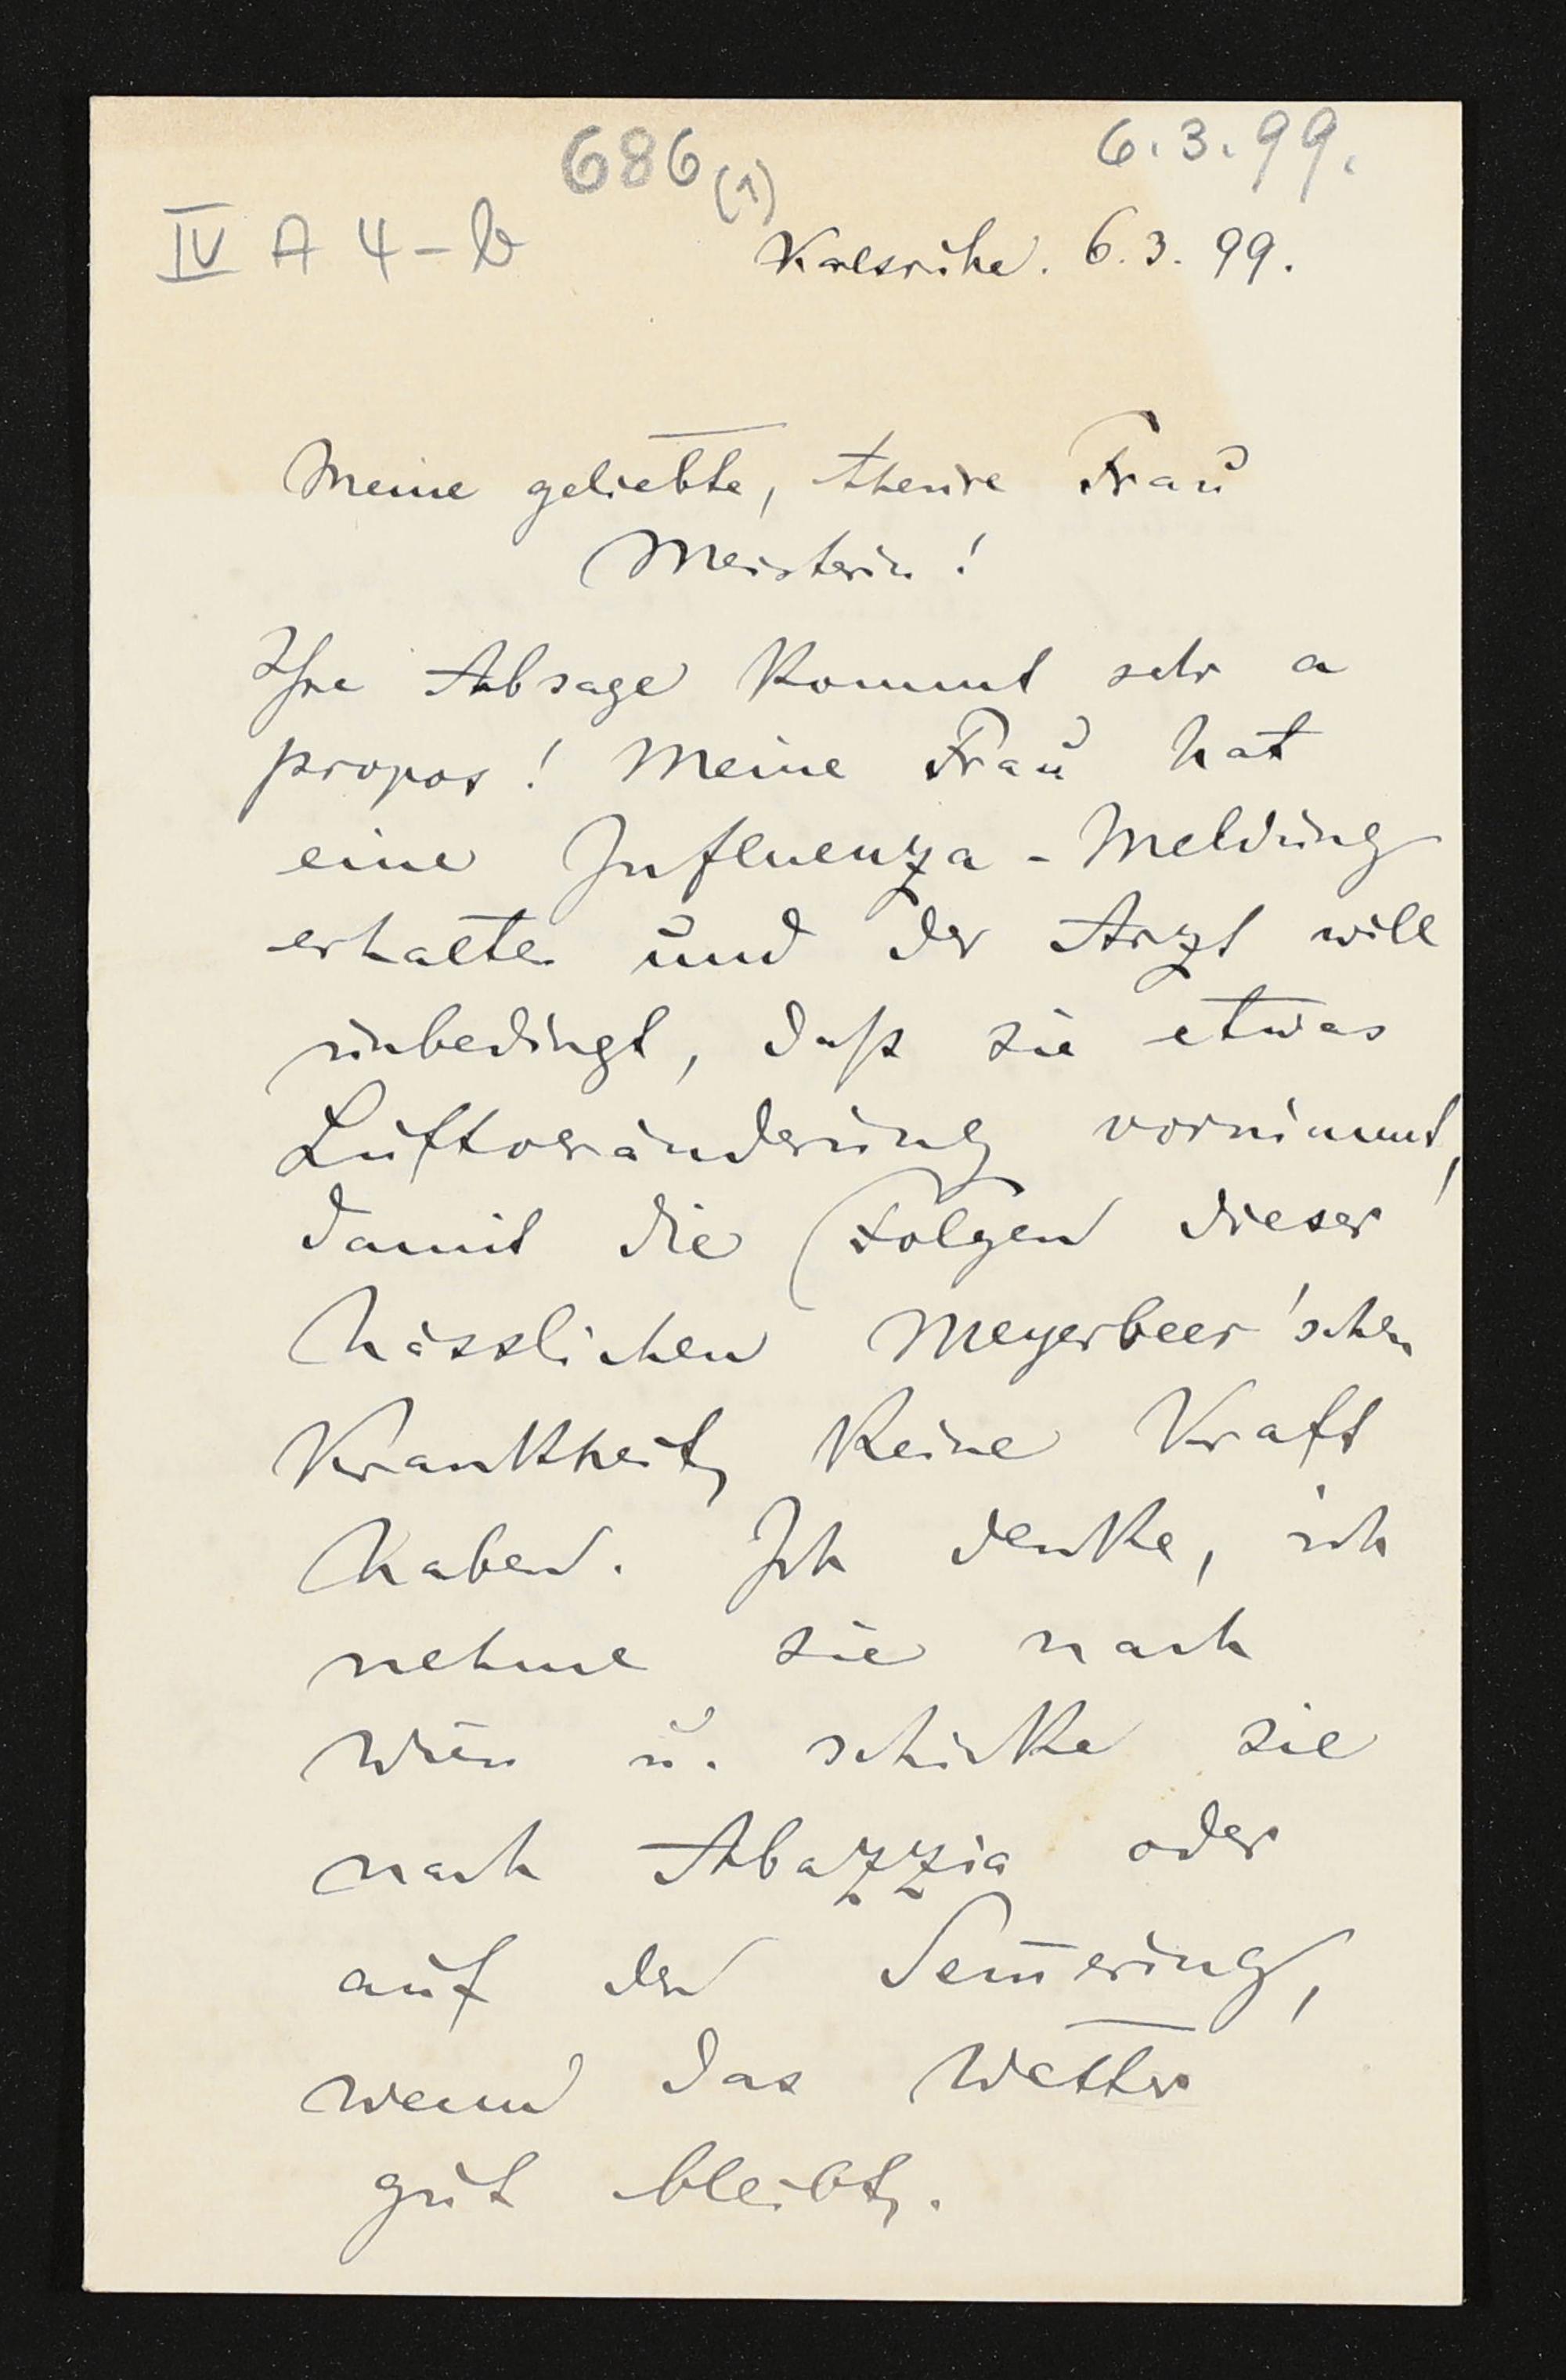 6.3.99.
686 (1)
IV A 4-b
Karlsruhe. 6.3.99.
Meine geliebte, theure Frau
Meisterin!
Ihre Absage kommt sehr a
propos! Meine Frau hat
eine Influenza-Meldung
erhalten und der Arzt will
unbedingt, daß sie etwas
Luftveränderung vornimmt,
damit die Folgen dieser
hässlichen Meyerbeer'schen
Krankheit, keine Kraft
haben. Ich denke, ich
nehme sie nach
Wien u. schicke sie
nach Abazzia oder
auf den Sem̅ering,
wenn das Wetter
gut bleibt.